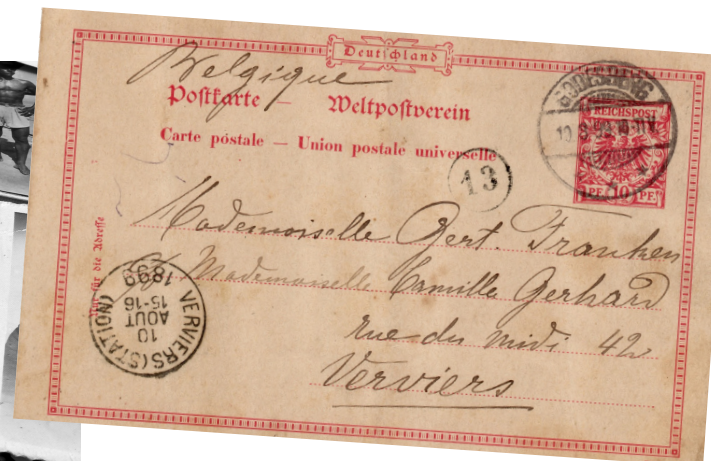 Deutschland
Belgique
Postkarte — Weltpostverein
Carte postale — Union postale universelle
GODESBERG
REICHSPOST
10 PF. 10 PF.
13
Mademoiselle Gert. Franken
Mademoiselle Camille Gerhard
rue du midi 42
Verviers
Nur für die Adresse
VERVIERS (STATION)
10
AOUT
15-16
1899